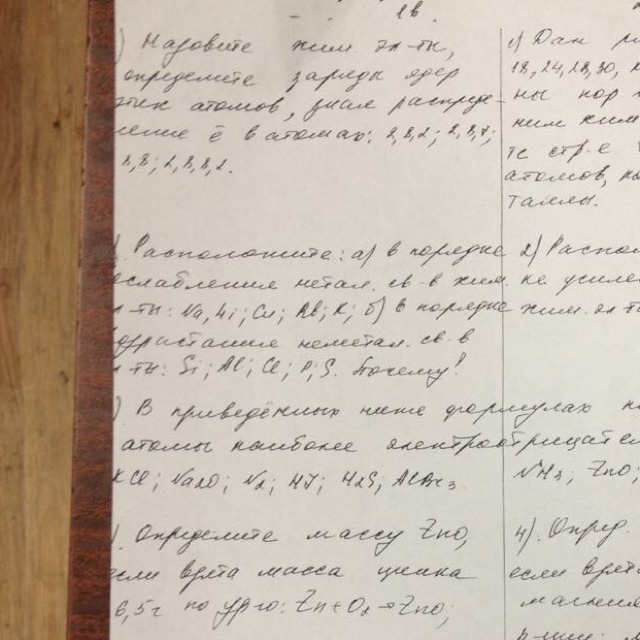 1в.
) Назовите хим. эл-ты,
определите заряды ядер
этих атомов, зная распреде-
ление ē в атомах: 2,8,2; 2,8,7;
2,8,8,2.
. Расположите: а) в порядке
ослабления метал. св-в хим.
л-ты: Na, Li; Cs; Rb; K; б) в порядке
возрастания неметал. св-в
л-ты: Si; Al; Cl; P; S. Почему?
) В приведённых ниже формулах
атомы наиболее электроотрицател
KCl; Na2O; N2; HJ; H2S; AlBr3
). Определите массу ZnO,
если взята масса цинка
6,5г по ур-ю: Zn + O2 → ZnO;
1) Дан
18, 24, 28, 30,
ны пор
ним хим
те стр-е
атомов,
таллы.
2) Распол
ке усиле
хим. эл-т
NH3; ZnO;
4). Опред.
если взят
магния